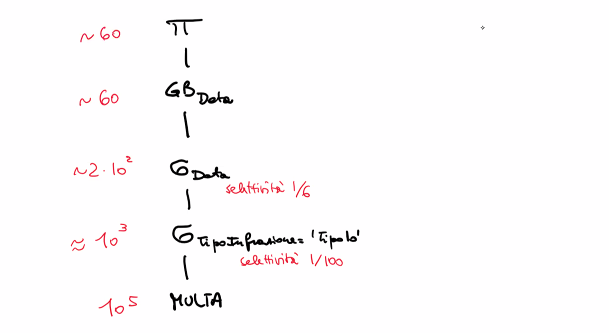 ~ 60 π
~ 60 GB Data
~ 2 · 10² σ Data
selettività 1/6
≈ 10³ σ TipoInfrazione = 'Tipo10'
selettività 1/100
10⁵ MULTA